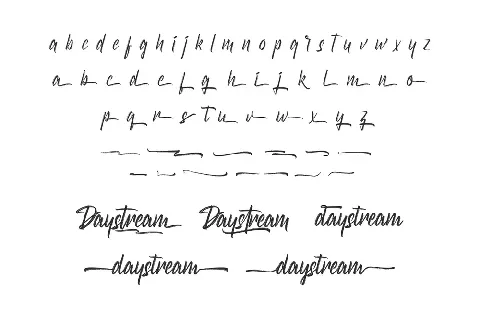 a b c d e f g h i j k l m n o p q r s t u v w x y z
a b c d e f g h i j k l m n o
p q r s t u v w x y z
Daystream Daystream daystream
daystream daystream